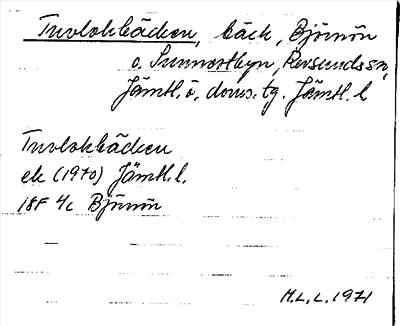 Tuvlokbäcken, bäck, Björnön
o. Sunnerstbyn, Revsunds sn,
Jämtl. ö. doms. tg. Jämtl. l
Tuvlokbäcken
ek (1970) Jämtl. l.
18F 4c Björnön
M.L.L. 1971